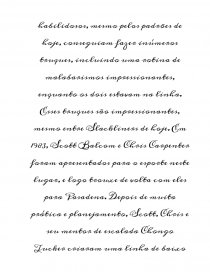 habilidosos, mesmo pelos padrões de
hoje, conseguiam fazer inúmeros
truques, incluindo uma rotina de
malabarismos impressionantes,
enquanto os dois estavam na linha.
Esses truques são impressionantes,
mesmo entre Slackliners de hoje. Em
1983, Scott Balcom e Chris Carpenter
foram apresentados para o esporte neste
lugar, e logo trouxe de volta com eles
para Pasadena. Depois de muita
prática e planejamento, Scott, Chris e
seu mentor de escalada Chongo
Tucker criaram uma linha de baixo